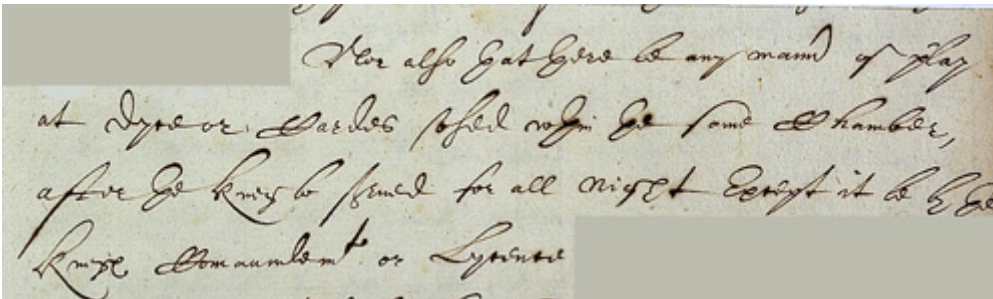 Nor also that there be any mann of play
at dyce or Cardes vsed wthin the same Chamber,
after the king be serued for all night Except it be by the
kings Comaundemt or Lycence